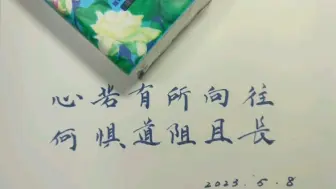 心若有所向往
何惧道阻且长
2023.5.8